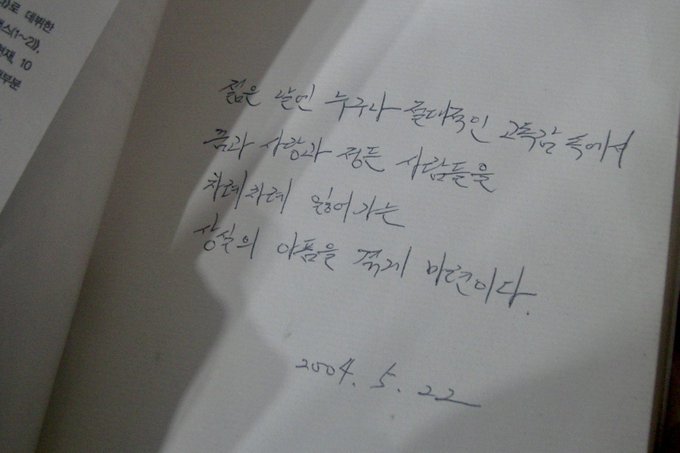 로 데뷔한
스(1~2)),
현재, 10
부분
젊은 날엔 누구나 절대적인 고독감 속에서
꿈과 사랑과 정든 사람들을
차례차례 잃어가는
상실의 아픔을 겪게 마련이다.
2004. 5. 22